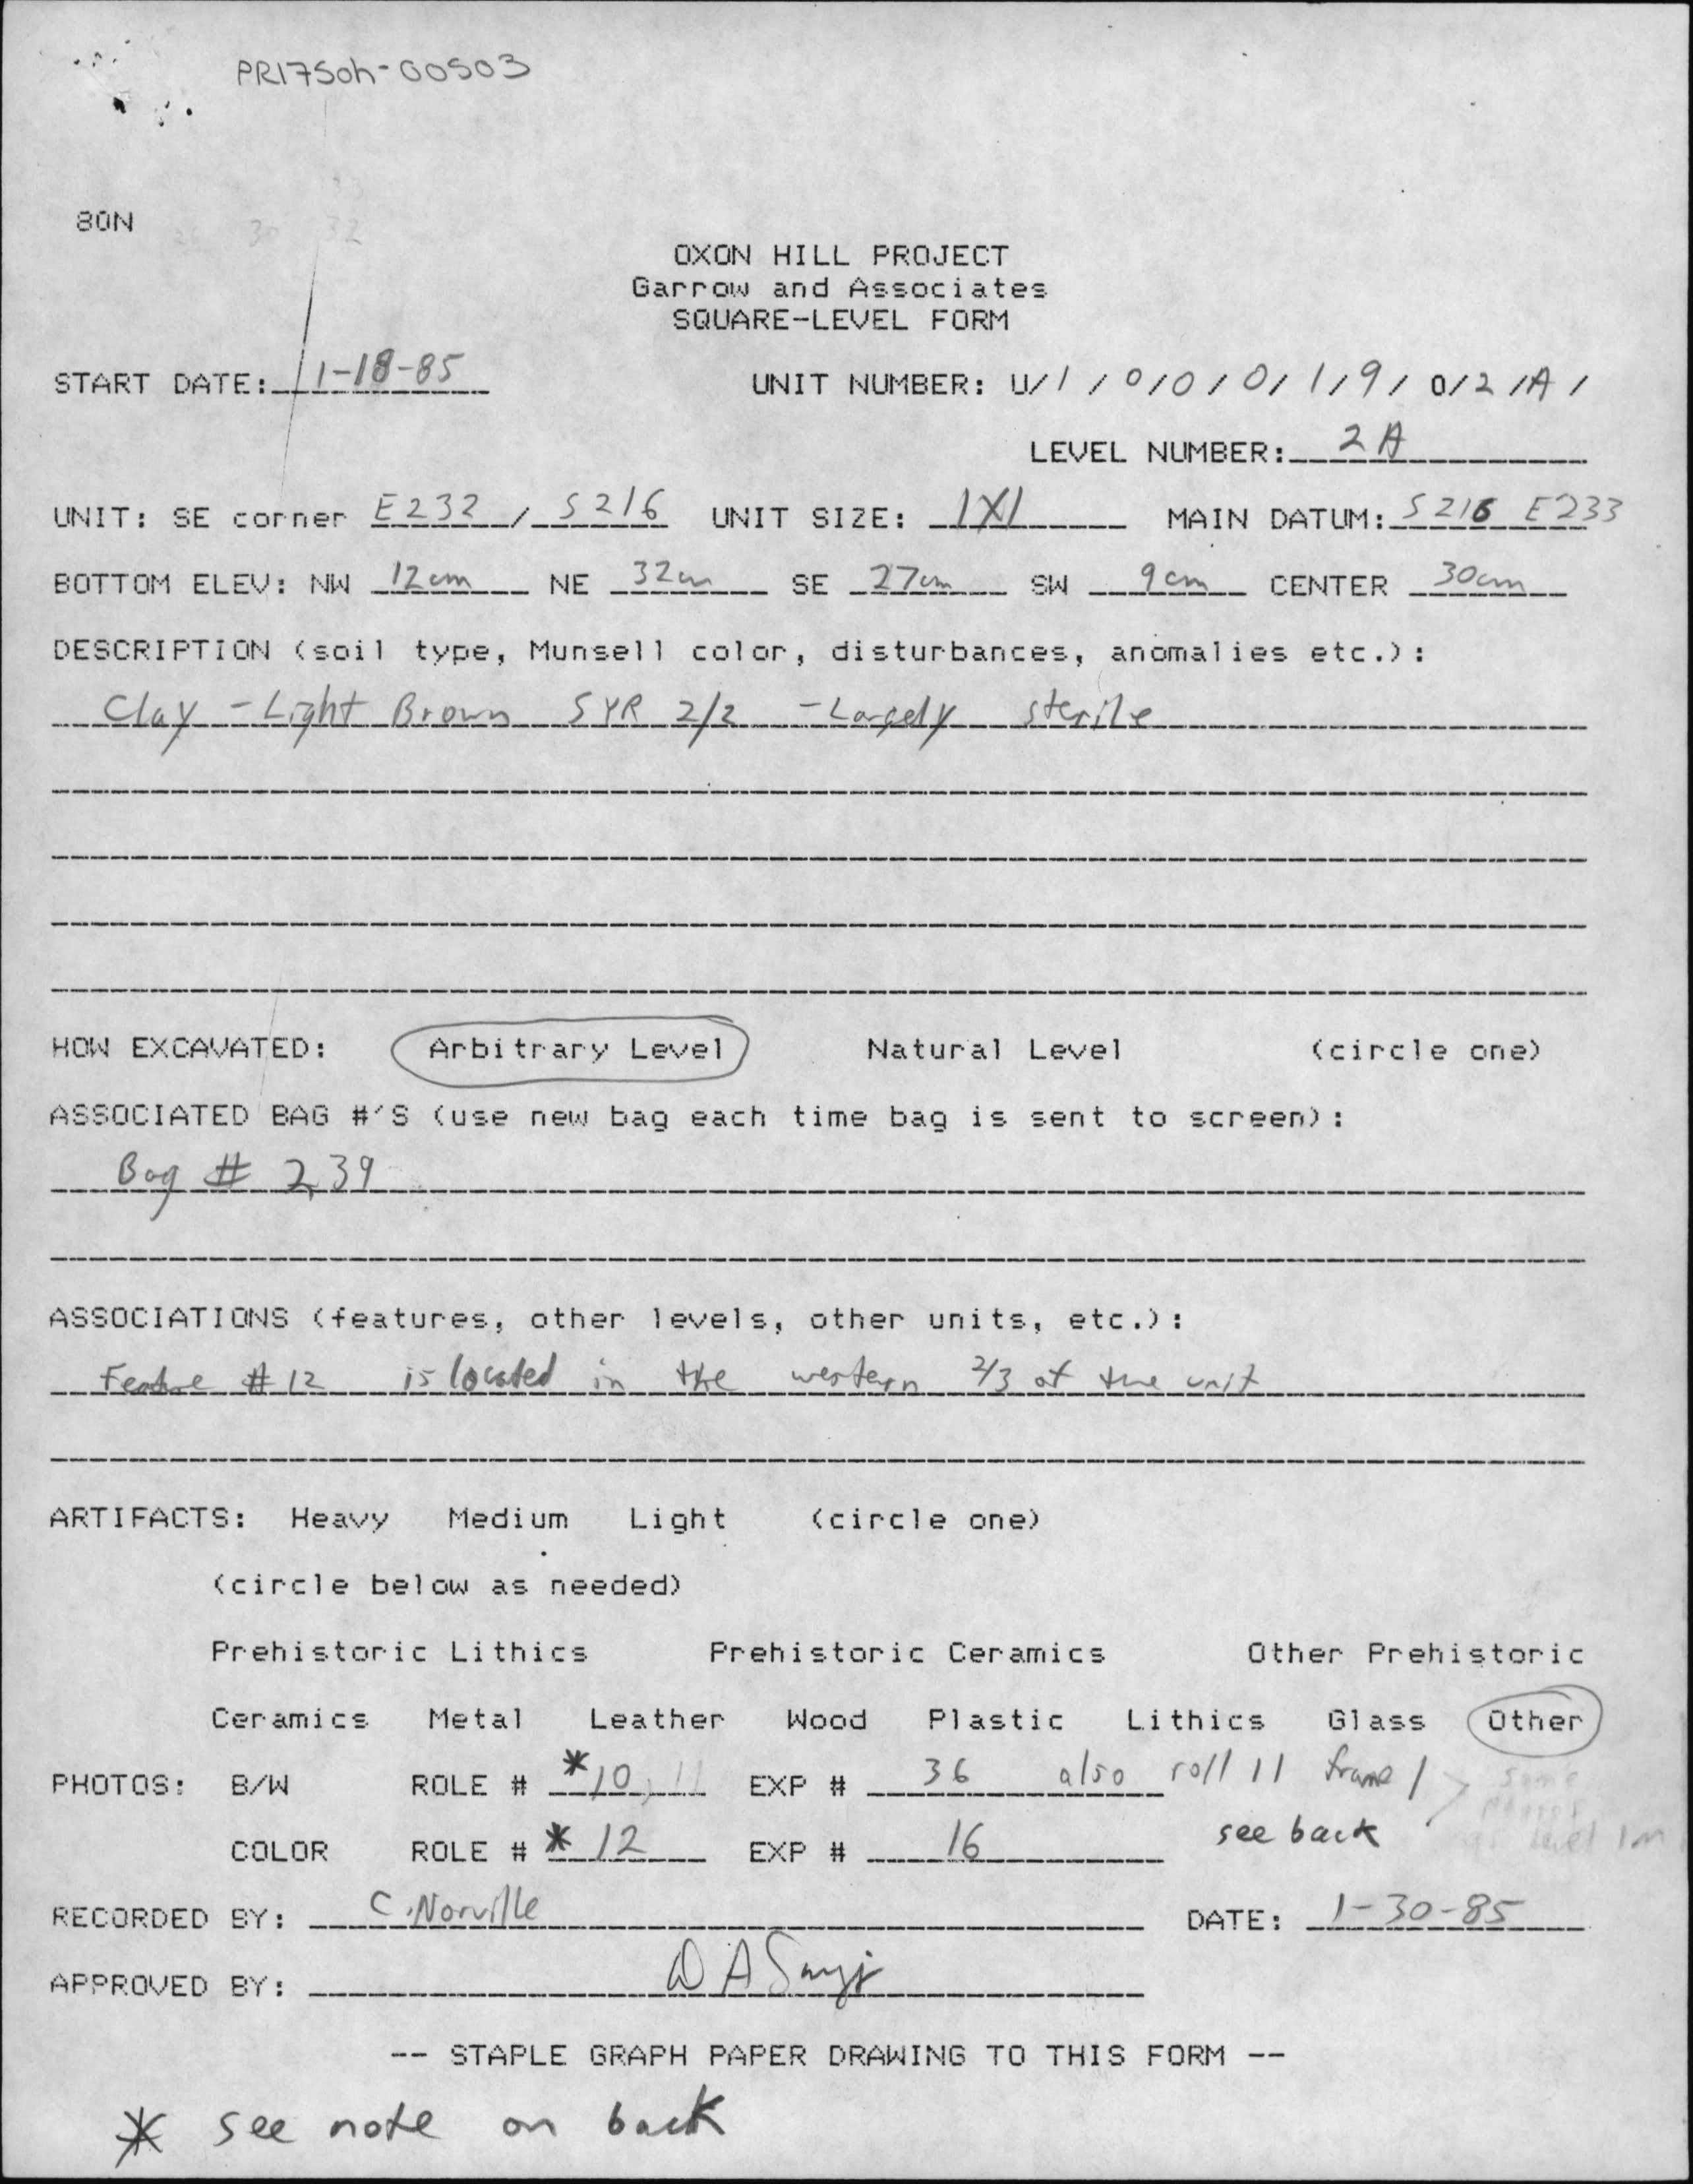 PR175oh-00503
80N
30 32
OXON HILL PROJECT
Garrow and Associates
SQUARE-LEVEL FORM
START DATE: 1-18-85 UNIT NUMBER: U/1/0/0/0/1/9/0/2/A/
LEVEL NUMBER: 2A
UNIT: SE corner E232 / S216 UNIT SIZE: 1X1 MAIN DATUM: S216 E233
BOTTOM ELEV: NW 12cm NE 32cm SE 27cm SW 9cm CENTER 30cm
DESCRIPTION (soil type, Munsell color, disturbances, anomalies etc.):
Clay - Light Brown 5YR 2/2 - Largely sterile
HOW EXCAVATED: Arbitrary Level Natural Level (circle one)
ASSOCIATED BAG #'S (use new bag each time bag is sent to screen):
Bag # 239
ASSOCIATIONS (features, other levels, other units, etc.):
Feature #12 is located in the western 2/3 of the unit
ARTIFACTS: Heavy Medium Light (circle one)
(circle below as needed)
Prehistoric Lithics Prehistoric Ceramics Other Prehistoric
Ceramics Metal Leather Wood Plastic Lithics Glass Other
PHOTOS: B/W ROLE # *10, 11 EXP # 36 also roll 11 frame 1
see back
COLOR ROLE # * 12 EXP # 16
RECORDED BY: C. Norville DATE: 1-30-85
APPROVED BY:
-- STAPLE GRAPH PAPER DRAWING TO THIS FORM --
* see note on back